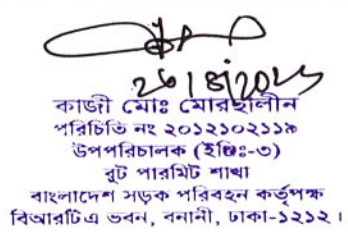 কাজী মোঃ মোরছালীন
পরিচিতি নং ২০১২১০২১১৯
উপপরিচালক (ইঞ্জিঃ-৩)
রুট পারমিট শাখা
বাংলাদেশ সড়ক পরিবহন কর্তৃপক্ষ
বিআরটিএ ভবন, বনানী, ঢাকা-১২১২।